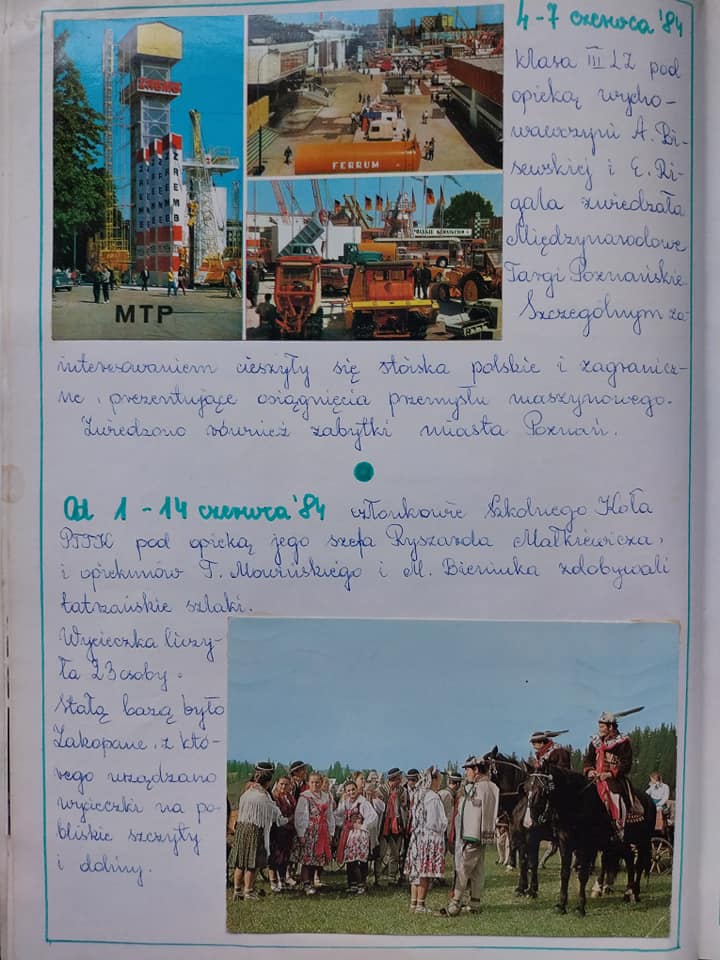 4-7 czerwca '84
klasa III LZ pod
opieką wycho-
wawczyni A. Bi-
szewskiej i E. Ri-
gala zwiedzała
Międzynarodowe
Targi Poznańskie.
Szczególnym za-
interesowaniem cieszyły się stoiska polskie i zagranicz-
ne, prezentujące osiągnięcia przemysłu maszynowego.
Zwiedzono również zabytki miasta Poznań.
ZREMB
ZREMB
ZREMB
MTP
FERRUM
Od 1-14 czerwca '84 członkowie Szkolnego Koła
PTTK pod opieką jego szefa Ryszarda Małkiewicza,
i opiekunów T. Mowińskiego i M. Bieniuka zdobywali
tatrzańskie szlaki.
Wycieczka liczy-
ła 23 osoby.
Stałą bazą było
Zakopane, z któ-
rego urządzano
wycieczki na po-
bliskie szczyty
i doliny.